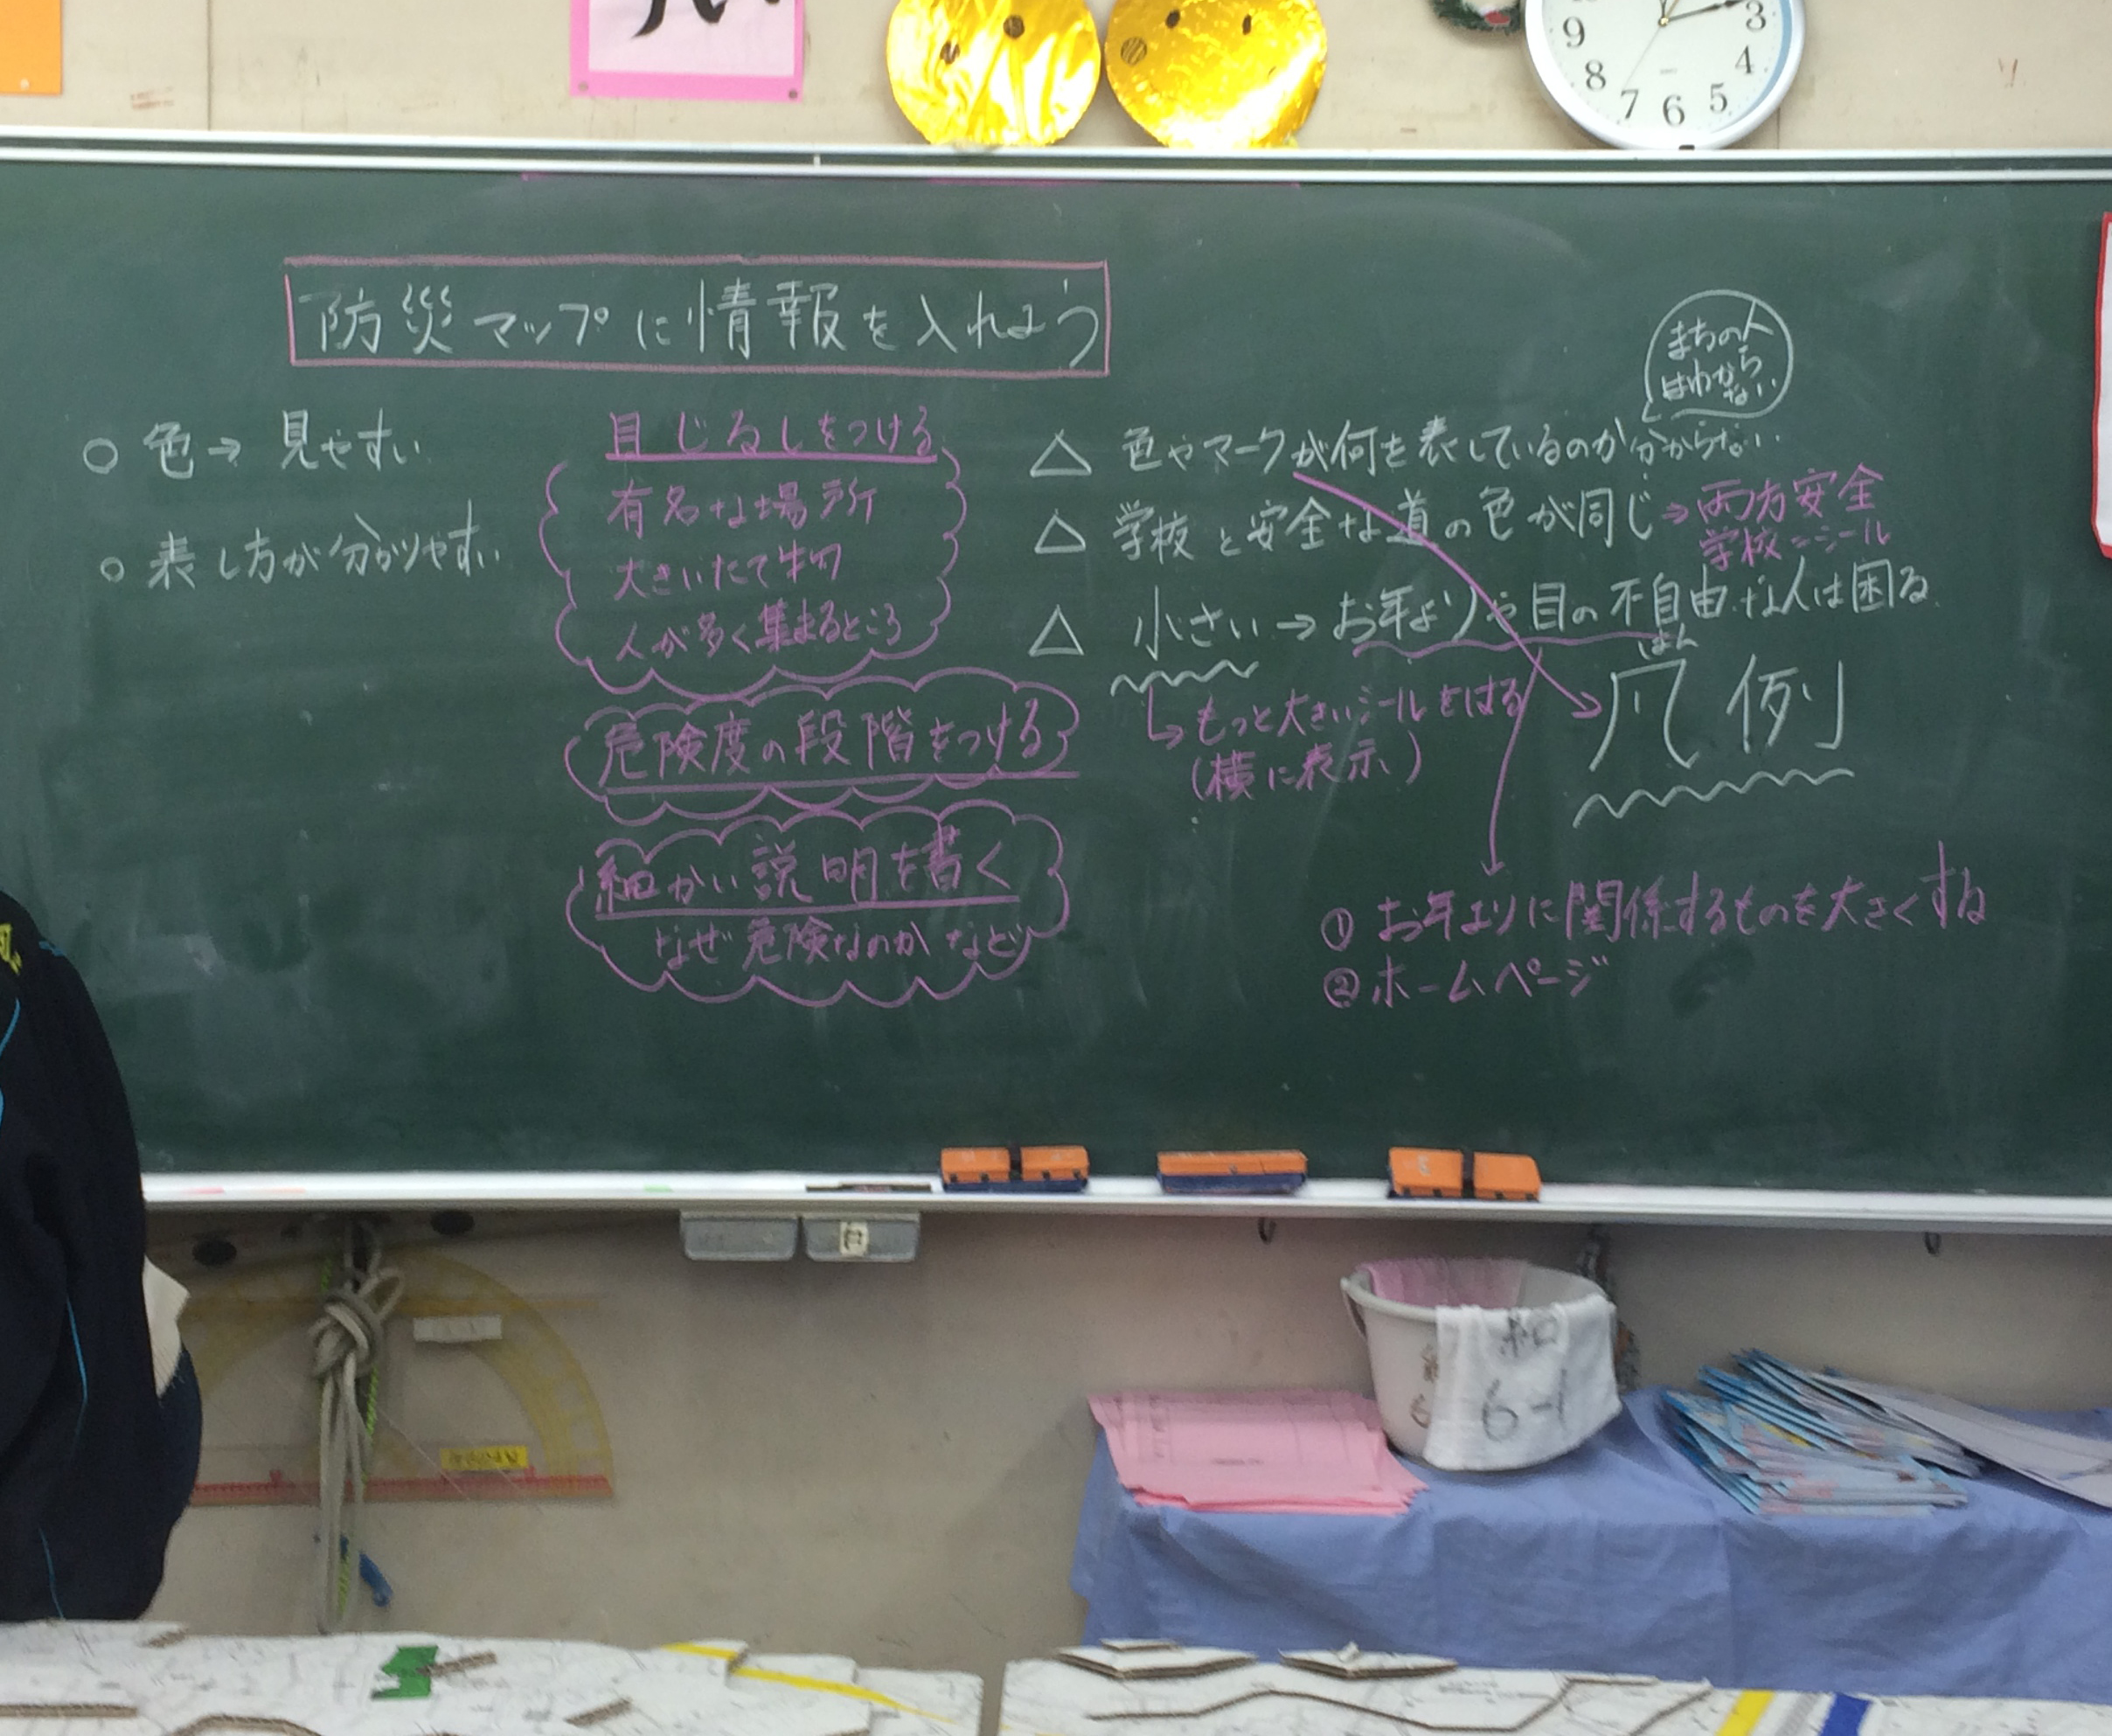 防災マップに情報を入れよう
○ 色→ 見やすい
○ 表し方が分かりやすい
目じるしをつける
有名な場所
大きいたて物
人が多く集まるところ
危険度の段階をつける
細かい説明を書く
なぜ危険なのか など
まちの人
はわから
ない
△ 色やマークが何を表しているのか分からない
△ 学校と安全な道の色が同じ→両方安全
学校=シール
△ 小さい→お年よりや目の不自由な人は困る
↳もっと大きいシールをはる
(横に表示)
はん
凡例
① お年よりに関係するものを大きくする
② ホームページ
9 8 7 6 5 4 3
6-1